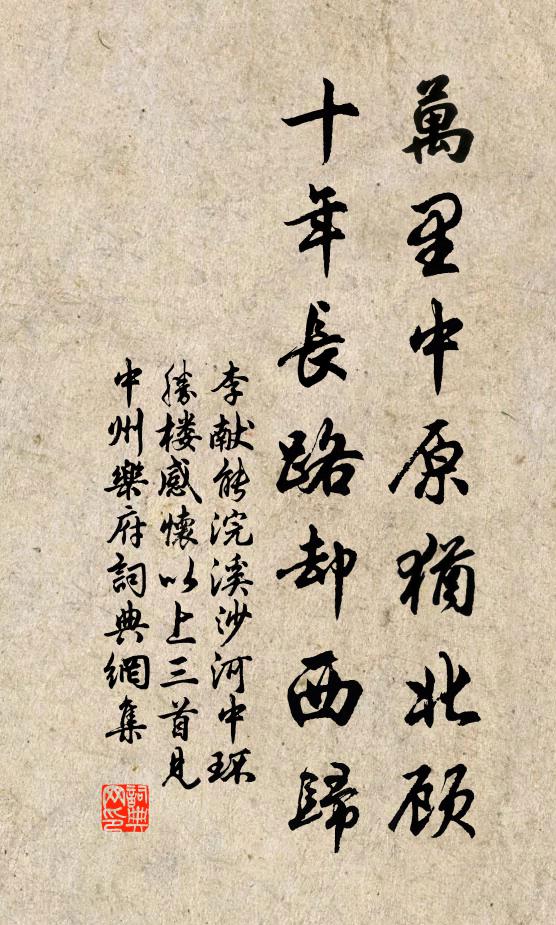 萬里中原猶北顾
十年長路却西歸
李献能浣溪沙河中环
勝楼感懷以上三首见
中州樂府詞典網集
詞典网印